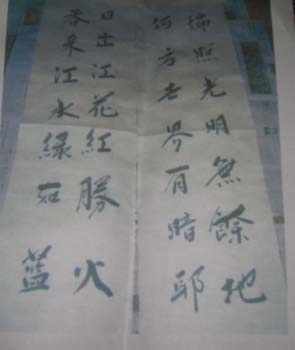 徧照光明無餘地
何方世界有暗耶
日出江花紅勝火
春来江水綠如藍